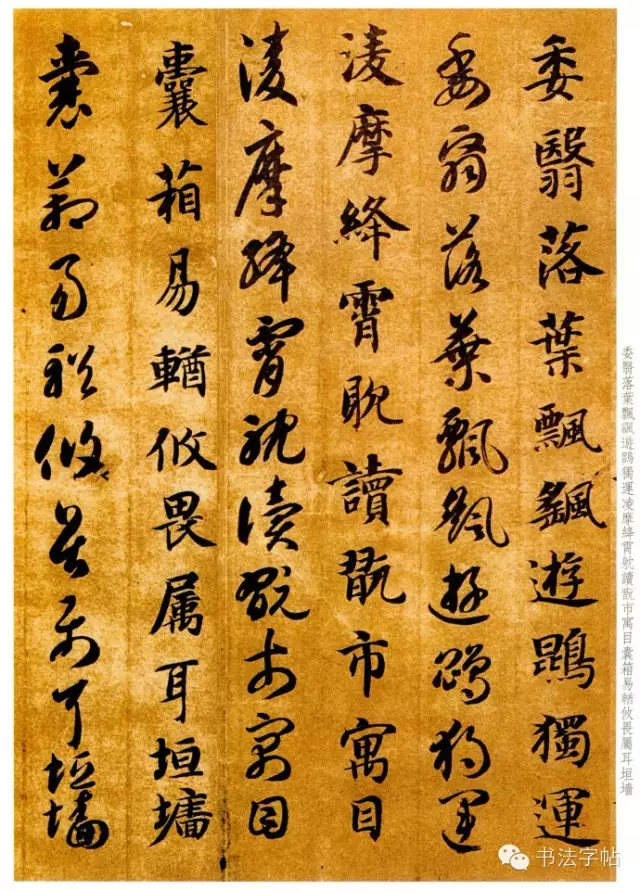 委翳落葉飄飖遊鵾獨運
委翳落葉飄飖遊鵾獨運
淩摩絳霄耽讀翫市寓目
淩摩絳霄耽讀翫市寓目
囊箱易輶攸畏属耳垣墻
囊箱易輶攸畏属耳垣墻
委翳落葉飄飖遊鵾獨運凌摩絳霄躭讀翫市寓目囊箱易輶攸畏屬耳垣墻
书法字帖